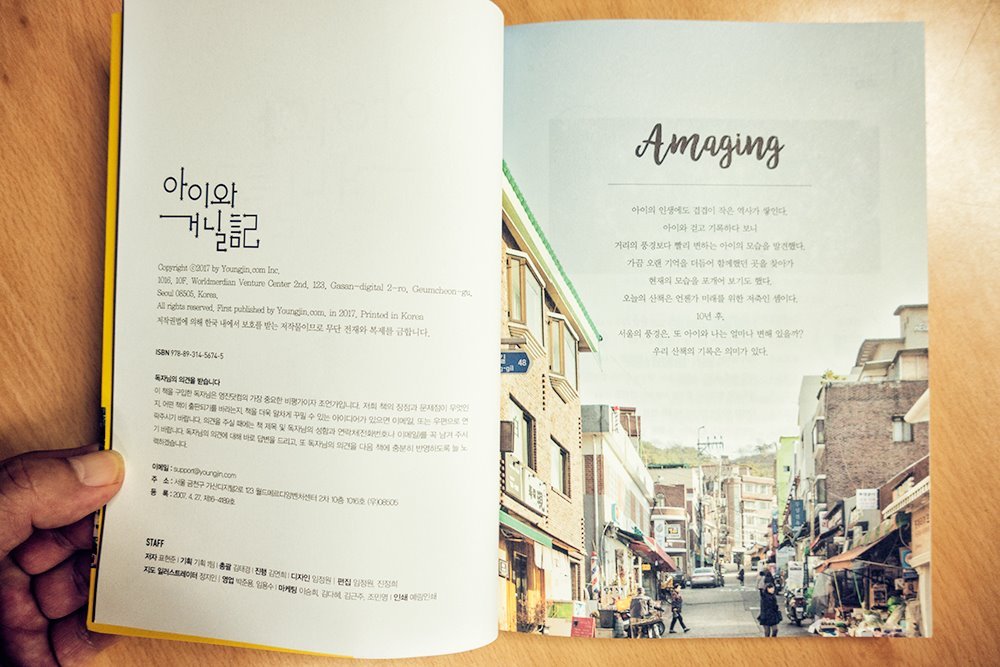 아이와
거닐記
Copyright ⓒ2017 by Youngjin.com Inc.
1016, 10F. Worldmerdian Venture Center 2nd, 123, Gasan-digital 2-ro, Geumcheon-gu,
Seoul 08505, Korea.
All rights reserved. First published by Youngjin.com. in 2017. Printed in Korea
저작권법에 의해 한국 내에서 보호를 받는 저작물이므로 무단 전재와 복제를 금합니다.
ISBN 978-89-314-5674-5
독자님의 의견을 받습니다
이 책을 구입한 독자님은 영진닷컴의 가장 중요한 비평가이자 조언가입니다. 저희 책의 장점과 문제점이 무엇인
지, 어떤 책이 출판되기를 바라는지, 책을 더욱 알차게 꾸밀 수 있는 아이디어가 있으면 이메일, 또는 우편으로 연
락주시기 바랍니다. 의견을 주실 때에는 책 제목 및 독자님의 성함과 연락처(전화번호나 이메일)를 꼭 남겨 주시
기 바랍니다. 독자님의 의견에 대해 바로 답변을 드리고, 또 독자님의 의견을 다음 책에 충분히 반영하도록 늘 노
력하겠습니다.
이메일 : support@youngjin.com
주 소 : 서울 금천구 가산디지털2로 123 월드메르디앙벤처센터 2차 10층 1016호 (우)08505
등 록 : 2007. 4. 27. 제16-4189호
STAFF
저자 표현준 | 기획 기획 1팀 | 총괄 김태경 | 진행 김연희 | 디자인 임정원 | 편집 임정원, 진정희
지도 일러스트레이터 정지인 | 영업 박준용, 임용수 | 마케팅 이승희, 김다혜, 김근주, 조민영 | 인쇄 예림인쇄
Amaging
아이의 인생에도 겹겹이 작은 역사가 쌓인다.
아이와 걷고 기록하다 보니
거리의 풍경보다 빨리 변하는 아이의 모습을 발견했다.
가끔 오랜 기억을 더듬어 함께했던 곳을 찾아가
현재의 모습을 포개어 보기도 했다.
오늘의 산책은 언젠가 미래를 위한 저축인 셈이다.
10년 후,
서울의 풍경은, 또 아이와 나는 얼마나 변해 있을까?
우리 산책의 기록은 의미가 있다.
길 48
-gil